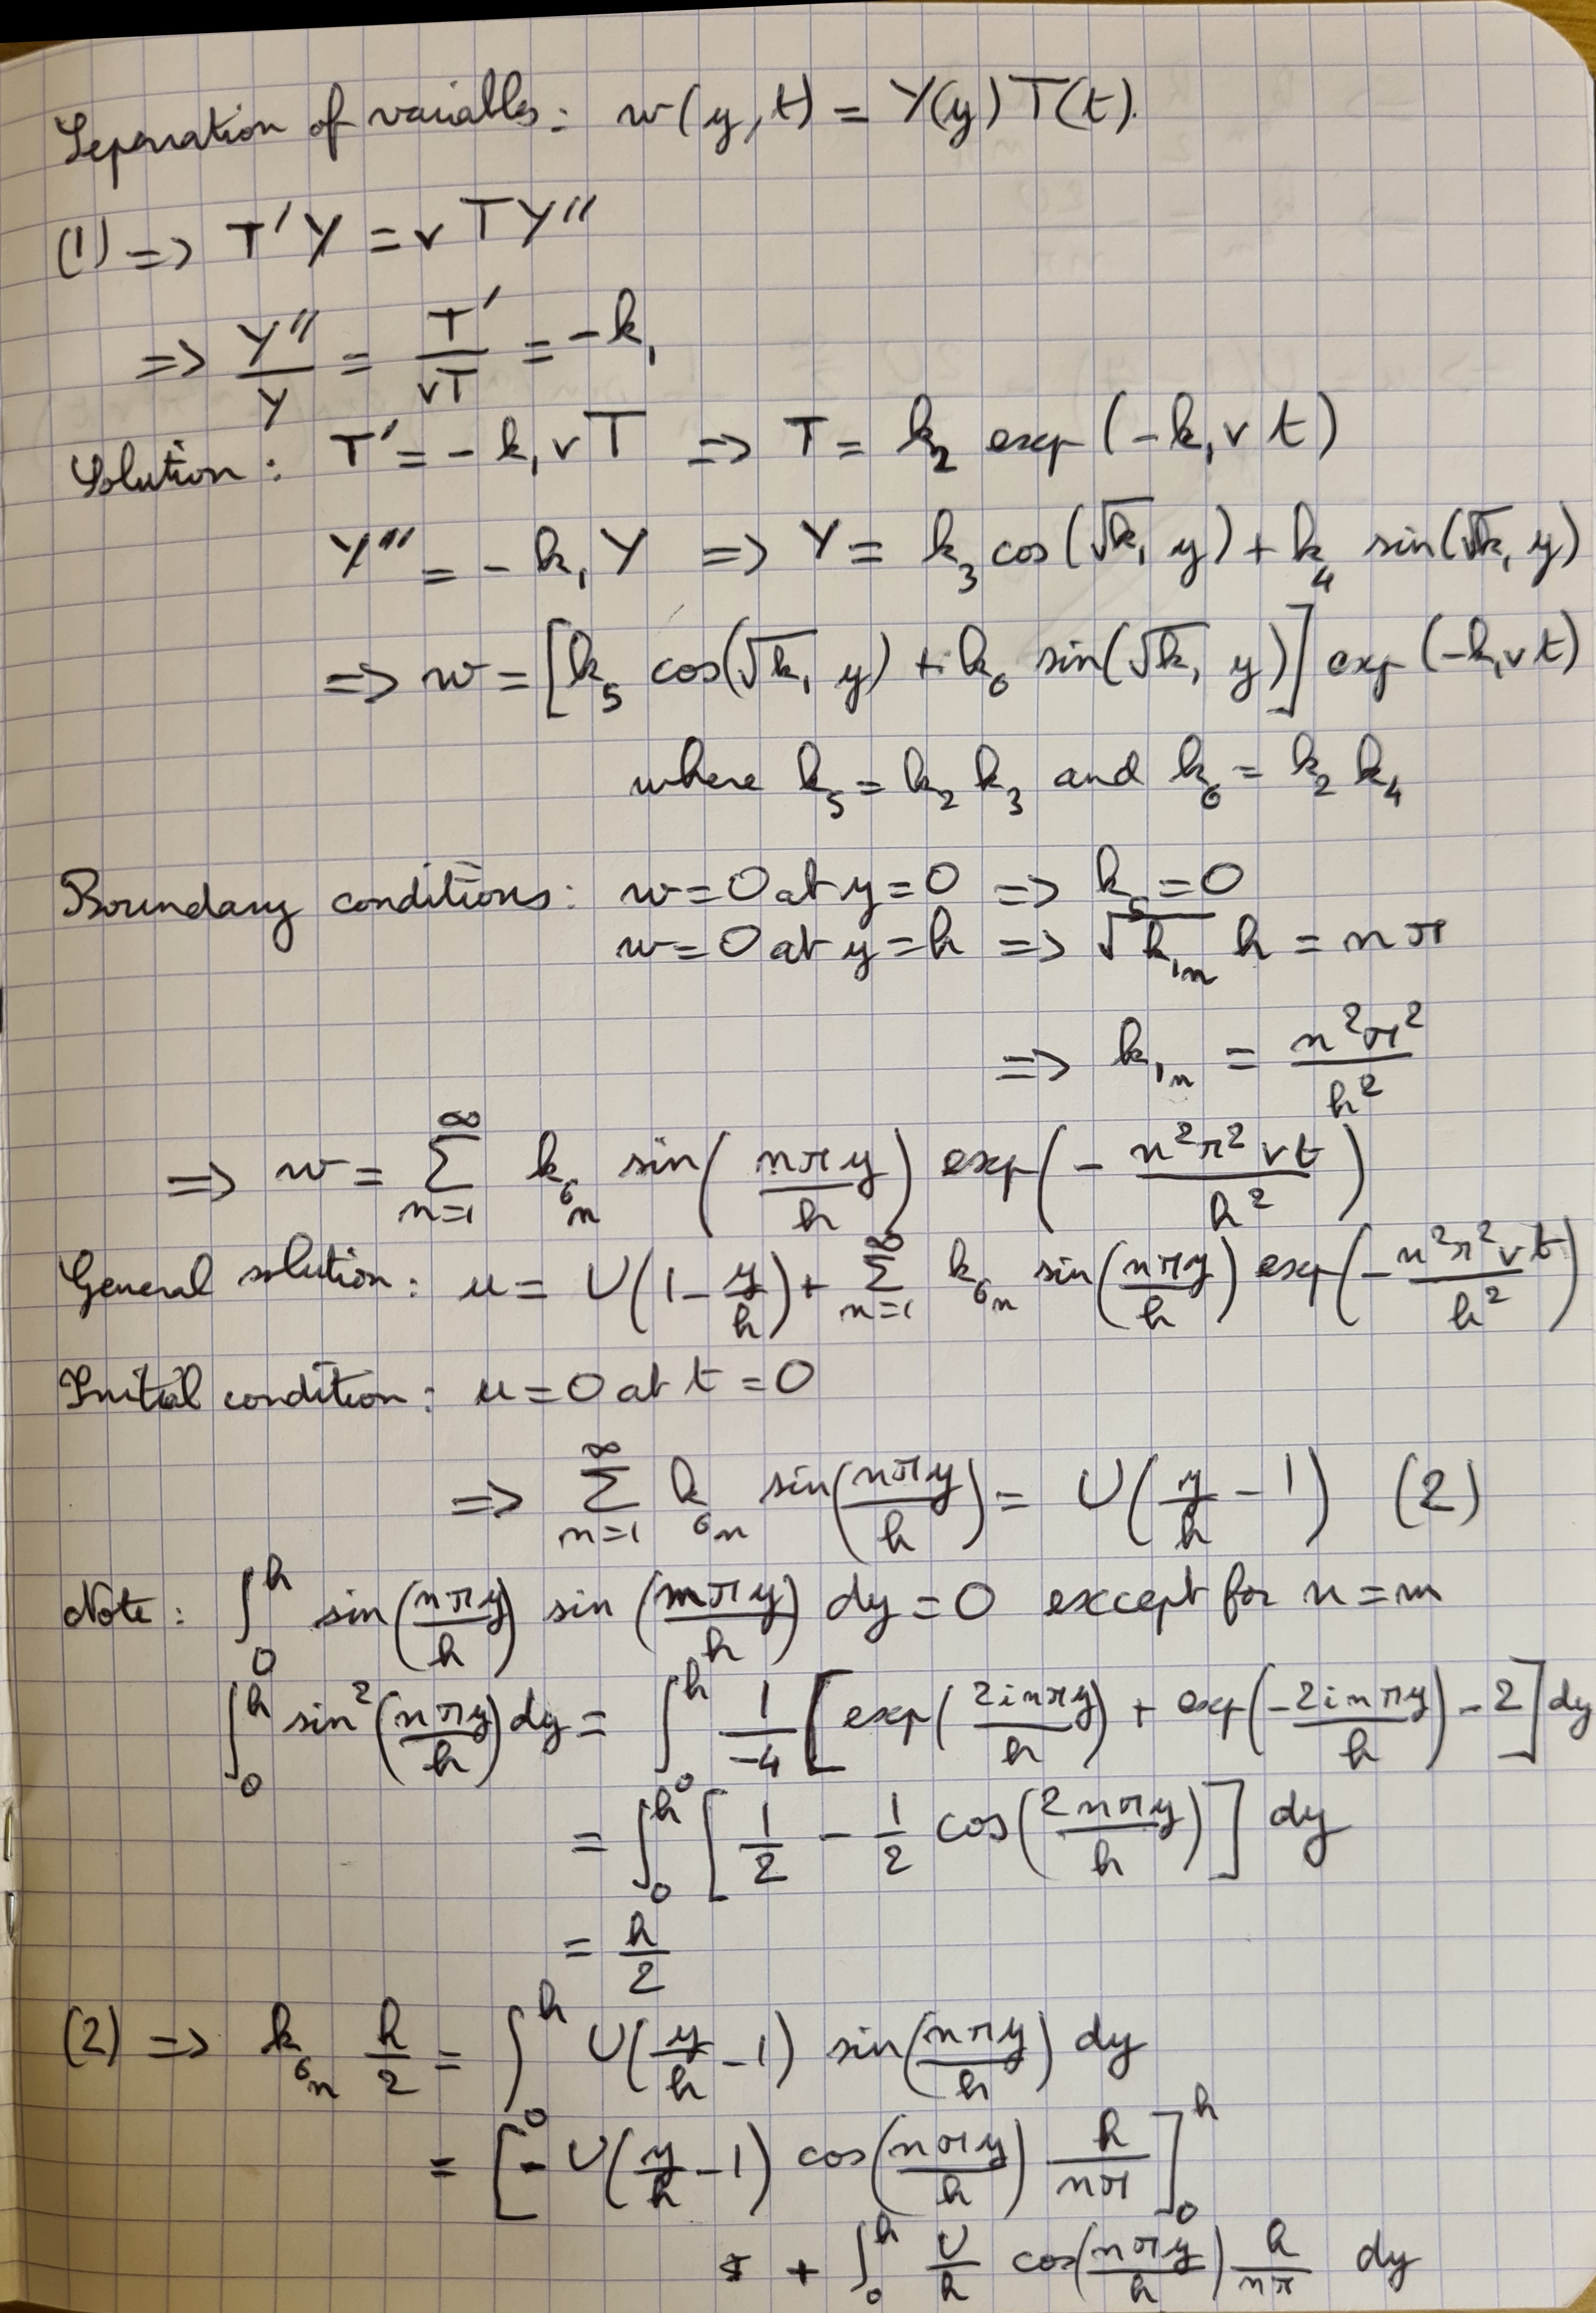 Separation of variables: w(y,t) = Y(y)T(t).
(1) => T'Y = νTY''
=> Y''/Y = T'/νT = -k₁
Solution: T' = -k₁νT => T = k₂ exp(-k₁νt)
Y'' = -k₁Y => Y = k₃ cos(√k₁ y) + k₄ sin(√k₁ y)
=> w = [k₅ cos(√k₁ y) + k₆ sin(√k₁ y)] exp(-k₁νt)
where k₅ = k₂ k₃ and k₆ = k₂ k₄
Boundary conditions: w = 0 at y = 0 => k₅ = 0
w = 0 at y = h => √k₁ₙ h = nπ
=> k₁ₙ = n²π²/h²
=> w = ∑_{n=1}^{∞} k₆ₙ sin(nπy/h) exp(-n²π²νt/h²)
General solution: u = U(1 - y/h) + ∑_{n=1}^{∞} k₆ₙ sin(nπy/h) exp(-n²π²νt/h²)
Initial condition: u = 0 at t = 0
=> ∑_{n=1}^{∞} k₆ₙ sin(nπy/h) = U(y/h - 1) (2)
Note: ∫₀^h sin(nπy/h) sin(mπy/h) dy = 0 except for n = m
∫₀^h sin²(nπy/h) dy = ∫₀^h 1/-4 [exp(2inπy/h) + exp(-2inπy/h) - 2] dy
= ∫₀^h [1/2 - 1/2 cos(2nπy/h)] dy
= h/2
(2) => k₆ₙ h/2 = ∫₀^h U(y/h - 1) sin(nπy/h) dy
= [-U(y/h - 1) cos(nπy/h) h/nπ]₀^h
+ ∫₀^h U/h cos(nπy/h) h/nπ dy